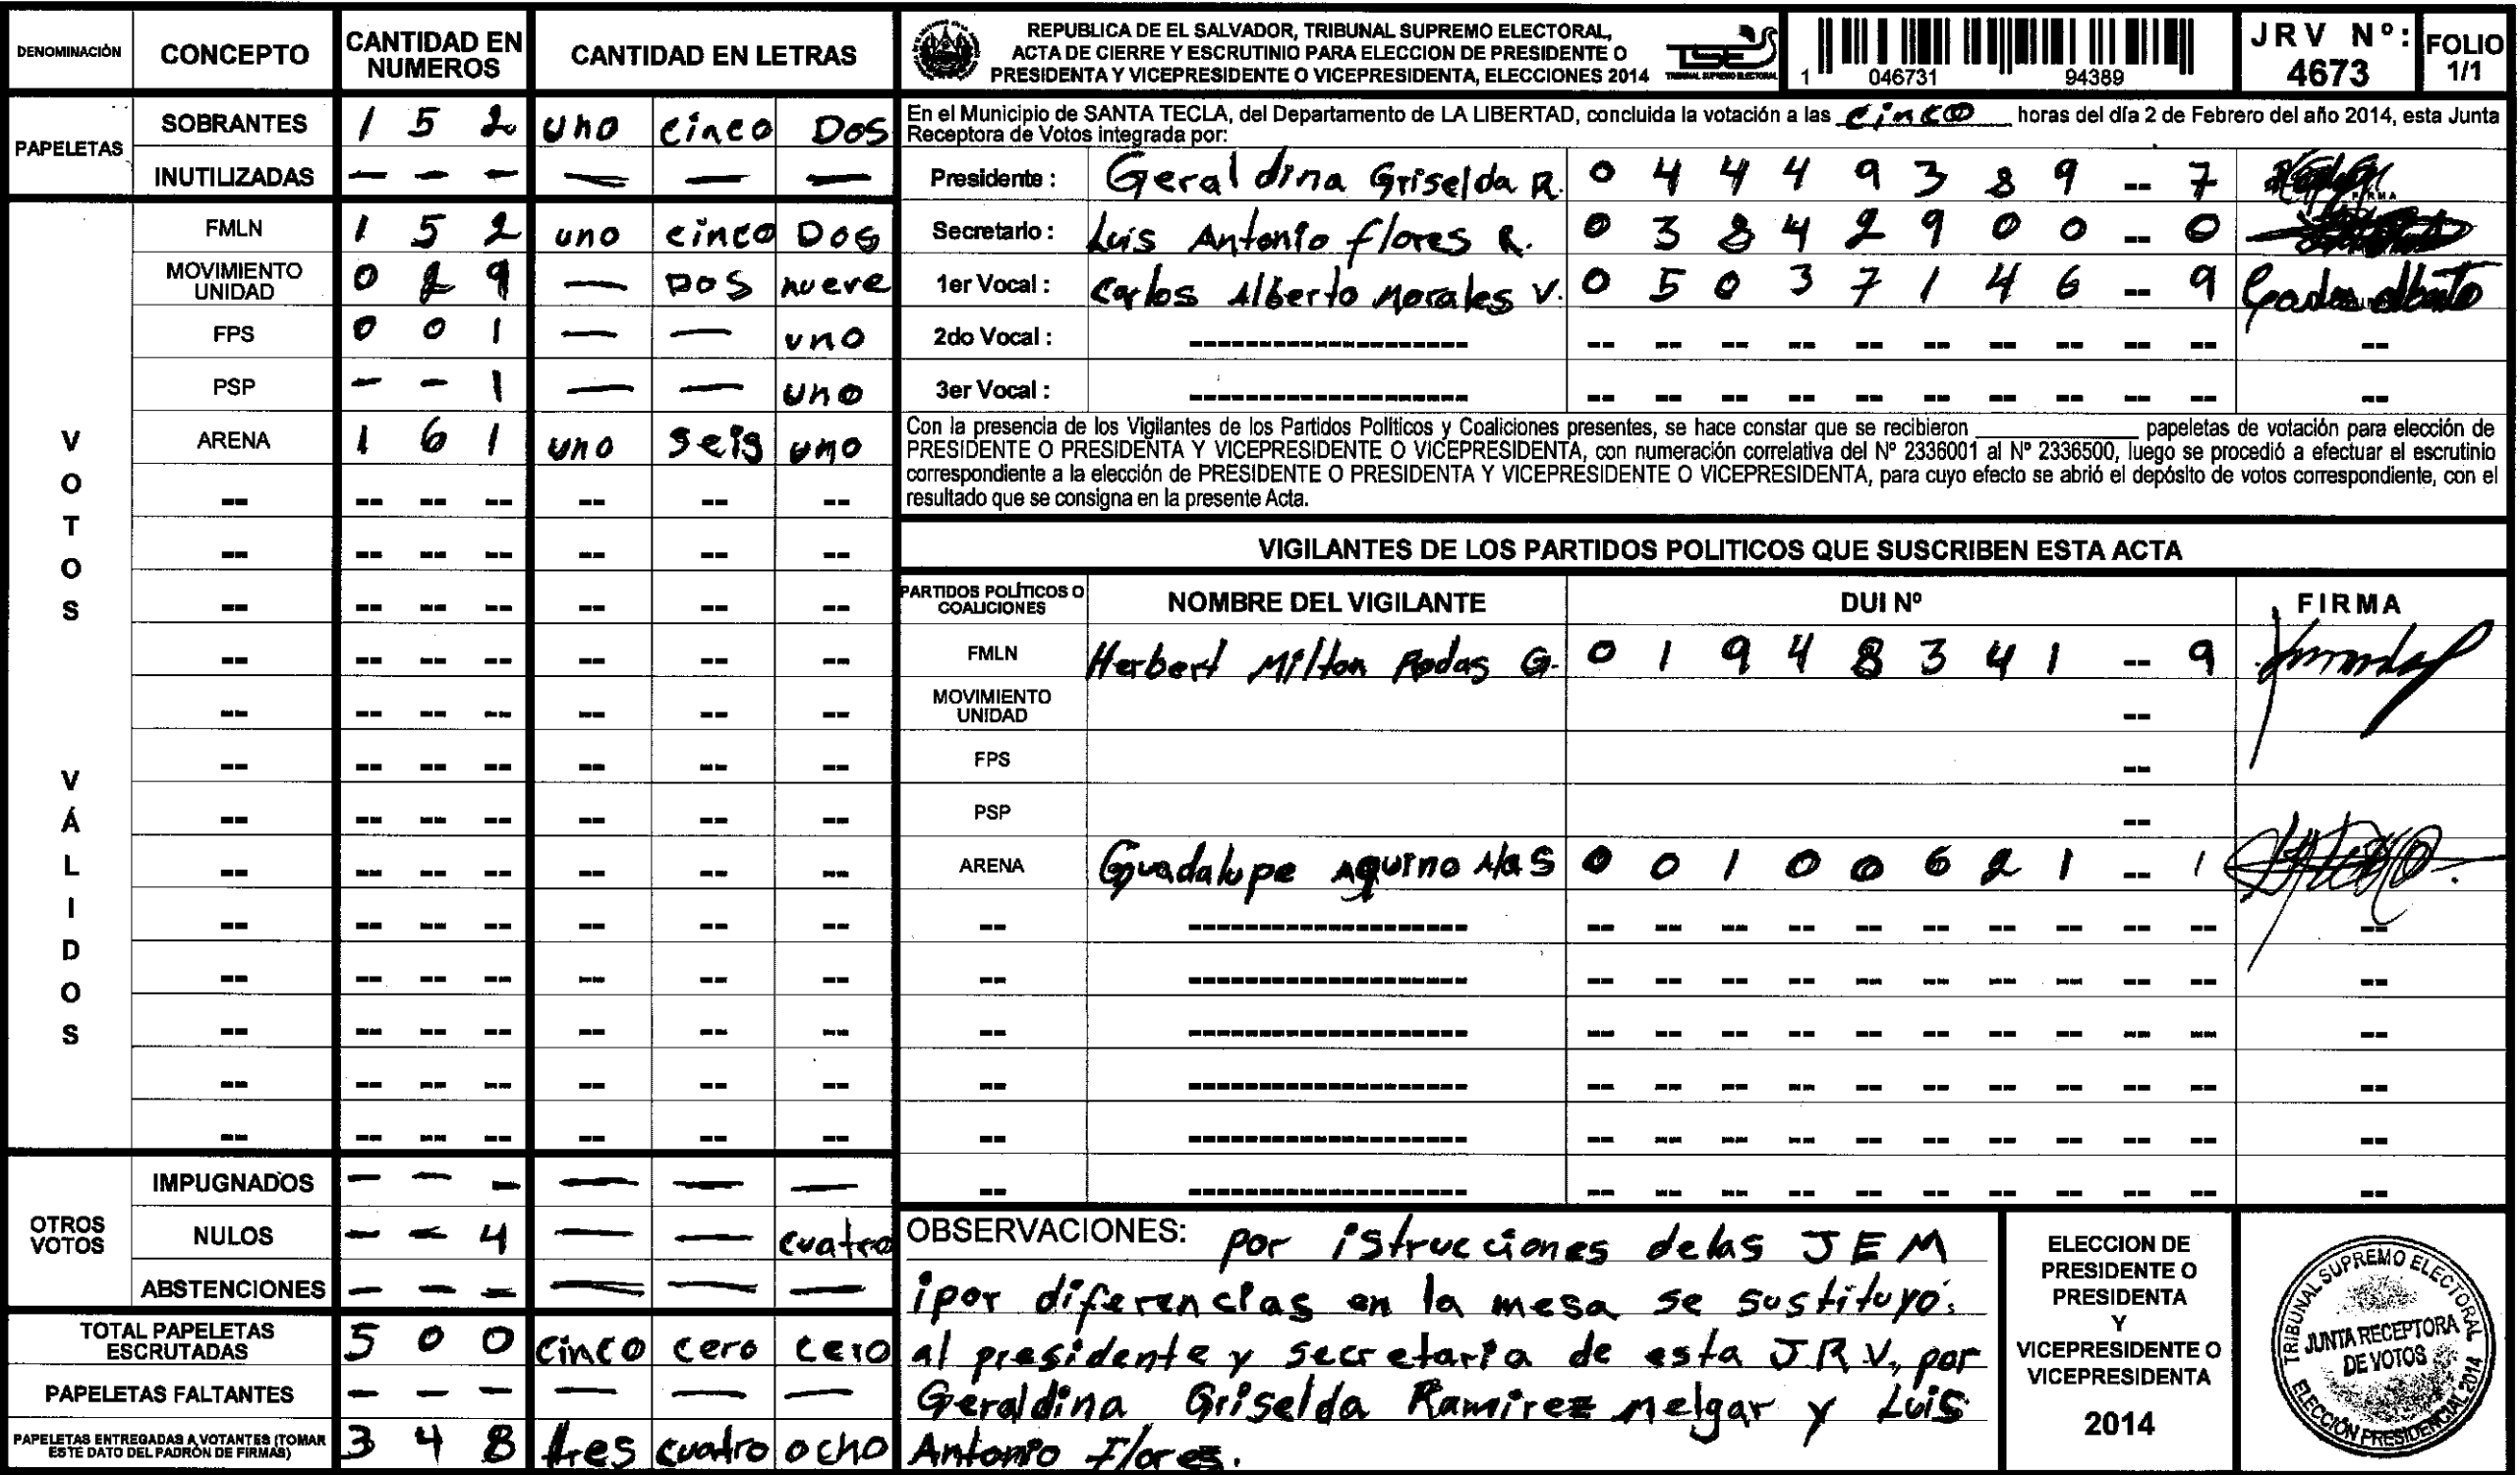 DENOMINACIÓN CONCEPTO CANTIDAD EN NUMEROS CANTIDAD EN LETRAS
PAPELETAS
SOBRANTES 1 5 2 uno cinco Dos
INUTILIZADAS — — — — — —
VOTOS VÁLIDOS
FMLN 1 5 2 uno cinco Dos
MOVIMIENTO UNIDAD 0 2 9 — Dos nueve
FPS 0 0 1 — — uno
PSP — — 1 — — uno
ARENA 1 6 1 uno seis uno
OTROS VOTOS
IMPUGNADOS — — — — — —
NULOS — — 4 — — cuatro
ABSTENCIONES — — — — — —
TOTAL PAPELETAS ESCRUTADAS 5 0 0 cinco cero cero
PAPELETAS FALTANTES — — — — — —
PAPELETAS ENTREGADAS A VOTANTES (TOMAR ESTE DATO DEL PADRÓN DE FIRMAS) 3 4 8 tres cuatro ocho
REPUBLICA DE EL SALVADOR, TRIBUNAL SUPREMO ELECTORAL,
ACTA DE CIERRE Y ESCRUTINIO PARA ELECCION DE PRESIDENTE O
PRESIDENTA Y VICEPRESIDENTE O VICEPRESIDENTA, ELECCIONES 2014
TSE
TRIBUNAL SUPREMO ELECTORAL
1 046731 94389
JRV Nº: 4673
FOLIO 1/1
En el Municipio de SANTA TECLA, del Departamento de LA LIBERTAD, concluida la votación a las cinco horas del día 2 de Febrero del año 2014, esta Junta
Receptora de Votos integrada por:
Presidente : Geraldina Griselda R. 0 4 4 4 9 3 8 9 -- 7
Secretario : Luis Antonio flores R. 0 3 8 4 2 9 0 0 -- 0
1er Vocal : Carlos Alberto Morales V. 0 5 0 3 7 1 4 6 -- 9
2do Vocal :
3er Vocal :
Con la presencia de los Vigilantes de los Partidos Políticos y Coaliciones presentes, se hace constar que se recibieron ____________ papeletas de votación para elección de
PRESIDENTE O PRESIDENTA Y VICEPRESIDENTE O VICEPRESIDENTA, con numeración correlativa del Nº 2336001 al Nº 2336500, luego se procedió a efectuar el escrutinio
correspondiente a la elección de PRESIDENTE O PRESIDENTA Y VICEPRESIDENTE O VICEPRESIDENTA, para cuyo efecto se abrió el depósito de votos correspondiente, con el
resultado que se consigna en la presente Acta.
VIGILANTES DE LOS PARTIDOS POLITICOS QUE SUSCRIBEN ESTA ACTA
PARTIDOS POLÍTICOS O COALICIONES NOMBRE DEL VIGILANTE DUI Nº FIRMA
FMLN Herbert Milton Rodas G. 0 1 9 4 8 3 4 1 -- 9
MOVIMIENTO UNIDAD --
FPS --
PSP --
ARENA Guadalupe Aquino Alas 0 0 1 0 0 6 2 1 -- 1
OBSERVACIONES: por istrucciones delas JEM
ipor diferencias en la mesa se sustituyo:
al presidente y secretaria de esta J.R.V, por
Geraldina Griselda Ramirez melgar y Luis
Antonio Flores.
ELECCION DE
PRESIDENTE O
PRESIDENTA
Y
VICEPRESIDENTE O
VICEPRESIDENTA
2014
TRIBUNAL SUPREMO ELECTORAL
JUNTA RECEPTORA
DE VOTOS
ELECCIÓN PRESIDENCIAL 2014